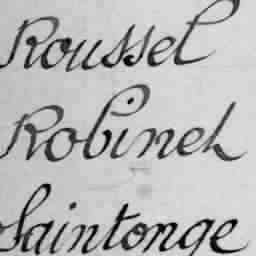 Roussel
Robinet
Saintonge